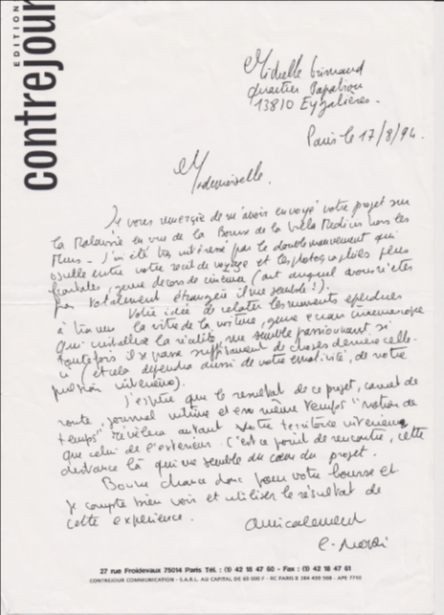 EDITION
contrejour
Michelle Grimaud
Quartier
13810 Eygalières.
Paris le 17/8/94.
Mademoiselle,
Je vous remercie de m'avoir envoyé votre projet sur
la Malaisie en vue de la Bourse de la Villa Medicis hors les
Murs - J'ai été très intéressé par le double mouvement qui
oscille entre votre récit de voyage et les photographies plus
frontales, genre décors de cinéma (art auquel vous n'êtes
pas totalement étrangère il me semble!).
Votre idée de relater les moments éperdues
à travers la vitre de la voiture, genre écran cinémascope
qui cristallise la réalité, me semble passionnant, si
toutefois il se passe suffisament de choses derrière celle-
ci (et cela dépendra aussi de votre émotivité, de votre
pulsion intérieure).
J'espère que le résultat de ce projet, carnet de
route, journal intime et en même temps "notion de
temps" révèlera autant votre territoire intérieur
que celui de l'extérieur. C'est ce point de rencontre, cette
distance là qui me semble au cœur du projet.
Bonne chance donc pour votre bourse et
je compte bien voir et utiliser le résultat de
cette expérience.
Amicalement
27 rue Froidevaux 75014 Paris Tél. : (1) 42 18 47 60 - Fax : (1) 42 18 47 61
CONTREJOUR COMMUNICATION - S.A.R.L. AU CAPITAL DE 60 000 F - RC PARIS B 384 499 568 - APE 7710